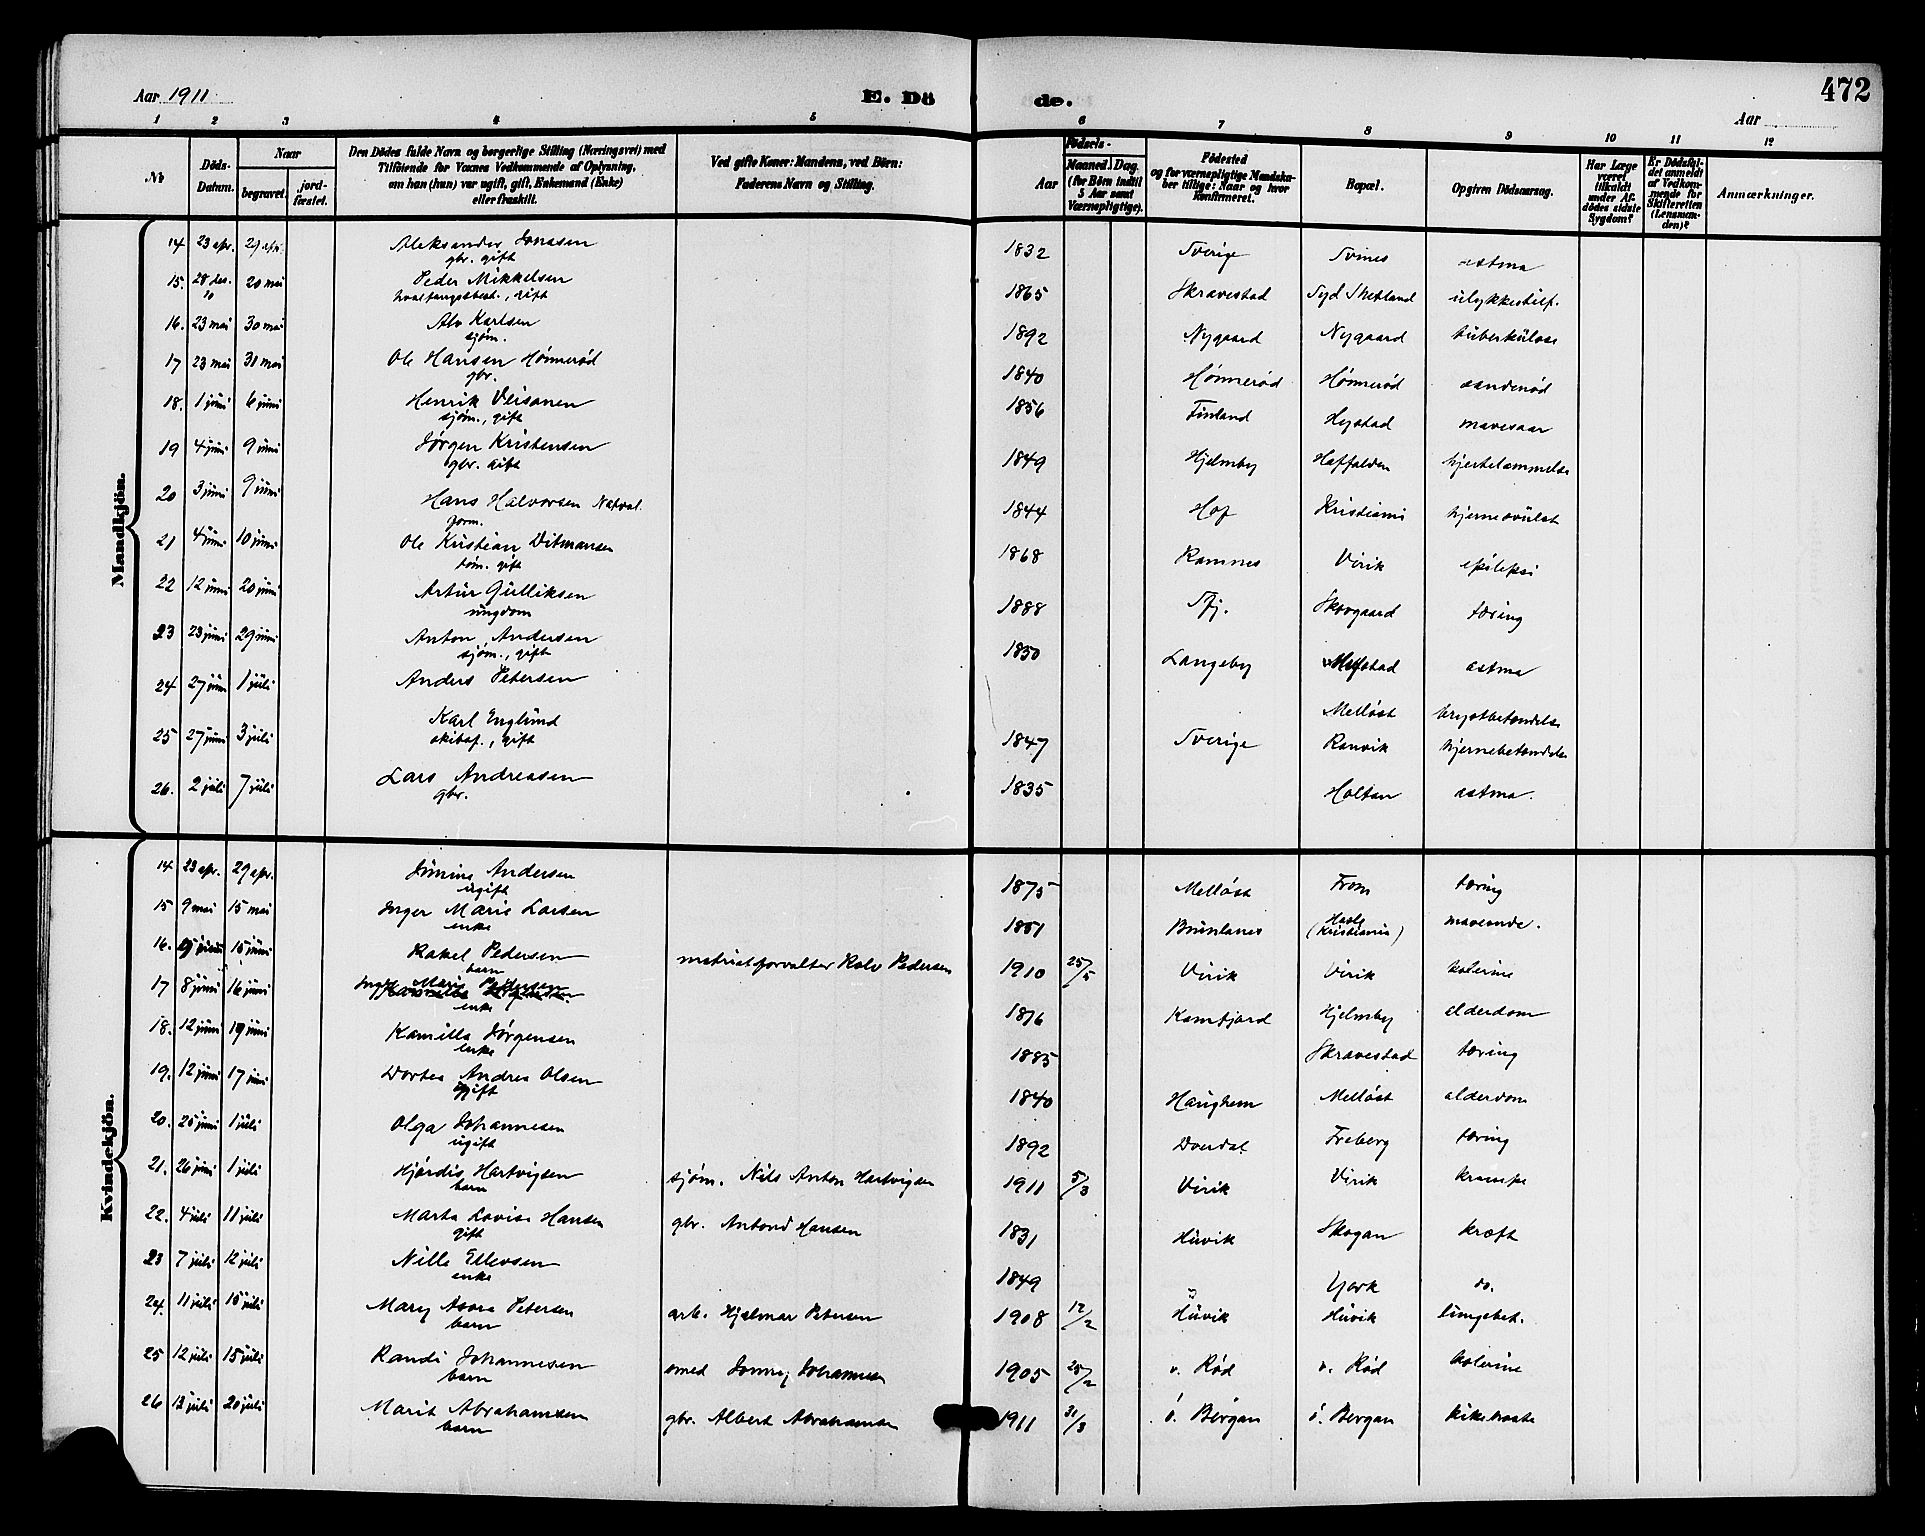 472
Aar 1911
E. Dö de.
Aar
1 2 3 4 5 6 7 8 9 10 11 12
No
Döds-Datum.
Naar
begravet.
jord-fæstet.
Den Dödes fulde Navn og borgerlige Stilling (Næringsvei) med
Tilföiende for Voxnes Vedkommende af Oplysning,
om han (hun) var ugift, gift, Enkemand (Enke)
eller fraskilt.
Ved gifte Koner: Mandens, ved Börn:
Faderens Navn og Stilling.
Födsels-
Aar
Maaned. Dag.
(for Börn indtil
5 Aar samt
Værnepligtige).
Födested
og for værnepligtige Mandska-
ber tillige: Naar og hvor
konfirmeret.
Bopæl.
Opgiven Dödsaarsag.
Har Læge
været
tilkaldt
under Af-
dödes sidste
Sygdom?
Er Dödsfal-
det anmeldt
af Vedkom-
mende for
Skifteretten
(Lensman-
den)?
Anmærkninger.
Mandkjön.
14 23 apr. 29 apr. Aleksander Jonasen 1832 Sverige Svines astma
gbr. gift
15. 28 des. 20 mai Peder Mikkelsen 1865 Skravestad Syd Shetland ulykkestilf.
10 hvalfangstbest., gift
16. 23 mai 30 mai Alv Karlsen 1892 Nygaard Nygaard tuberkulose
sjøm.
17 23 mai 31 mai Ole Hansen Hønnerød 1840 Hønnerød Hønnerød aandenød
gbr.
18. 1 juni 6 juni Henrik 1856 Finland Hystad mavesaar
sjøm., gift
19 4 juni 9 juni Jørgen Kristensen 1849 Hjelmby Haffalden hjertelammelse
gbr. gift
20 3 juni 9 juni Hans Halvorsen 1844 Hof Kristiania hjernesvulst
21 4 juni 10 juni Ole Kristian Ditmansen 1868 Ramnes Virik epilepsi
tøm. gift
22 12 juni 20 juni Artur Gulliksen 1888 Sfj. Skovgaard tæring
ungdom
23 23 juni 29 juni Anton Andersen 1850 Langeby astma
sjøm., gift
24 27 juni 1 juli Anders Petersen Melløst brystbetændelse
25 27 juni 3 juli Karl Englund 1847 Sverige Ranvik hjernebetændelse
skibsf., gift
26. 2 juli 7 juli Lars Andreasen 1835 Holtan astma.
gbr.
Kvindekjön.
14 23 apr. 29 apr. Jonine Andersen 1875 Melløst From tæring
ugift
15 9 mai 15 mai Inger Marie Larsen 1851 Brunlanes Hasle (Kristiania) maveonde.
enke
16. 15 juni Rakel Pedersen matrialforvalter Rolv Pedersen 1910 25/5 Virik Virik kolerine
barn
17 8 juni 16 juni Inger Marie Pedersen Hjelmby alderdom
enke
18. 12 juni 19 juni Kamilla Jørgensen 1885 Skravestad tæring
enke
19. 12 juni 17 juni Dortea Andrea Olsen 1840 Haughem Melløst alderdom
gift
20. 25 juni 1 juli Olga Johannesen 1892 Dverdal Freberg tæring
ugift
21. 26 juni 1 juli Hjørdis Hartvigsen sjøm. Nils Anton Hartvigsen 1911 5/3 Virik Virik krampe
barn
22. 4 juli 11 juli Marta Lovise Hansen gbr. Antond Hansen 1831 Huvik Skogan kræft
gift
23 7 juli 12 juli Nille Ellevsen 1849 York do.
enke
24. 11 juli 15 juli Mary Petersen arb. Hjalmar Petersen 1908 12/2 Huvik Huvik lungebet.
barn
25 12 juli 15 juli Randi Johannesen smed Johannesen 1905 25/2 v. Rød v. Rød kolerine
barn
26 13 juli 20 juli Marit Abrahamsen gbr. Albert Abrahamsen 1911 31/3 ö. Bergan ö. Bergan kikhoste
barn